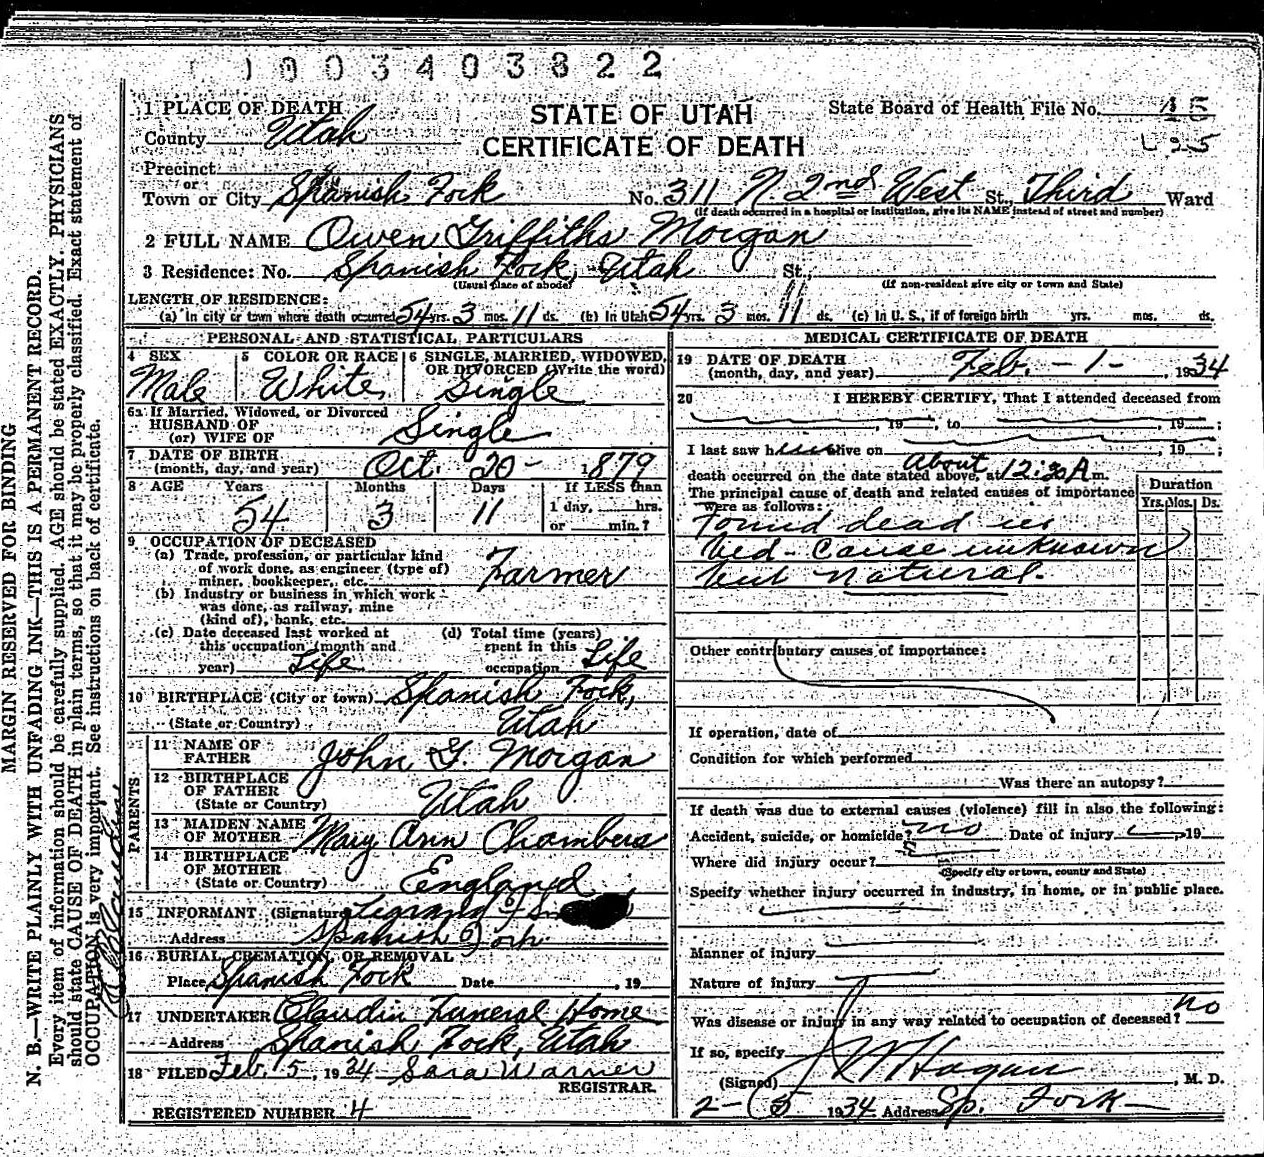 1003403822
1 PLACE OF DEATH
STATE OF UTAH
CERTIFICATE OF DEATH
State Board of Health File No. 45
County Utah
Precinct
or
Town or City Spanish Fork No. 311 N. 2nd West St., Third Ward
(If death occurred in a hospital or institution, give its NAME instead of street and number)
2 FULL NAME Owen Griffiths Morgan
3 Residence: No. Spanish Fork, Utah St.,
(Usual place of abode) (If non-resident give city or town and State)
LENGTH OF RESIDENCE:
(a) In city or town where death occurred 54 yrs. 3 mos. 11 ds. (b) In Utah 54 yrs. 3 mos. 11 ds. (c) In U. S., if of foreign birth yrs. mos. ds.
PERSONAL AND STATISTICAL PARTICULARS
4 SEX Male
5 COLOR OR RACE White
6 SINGLE, MARRIED, WIDOWED, OR DIVORCED (Write the word) Single
6a If Married, Widowed, or Divorced
HUSBAND OF
(or) WIFE OF Single
7 DATE OF BIRTH
(month, day, and year) Oct. 20 - 1879
8 AGE Years Months Days If LESS than
54 3 11 1 day, hrs.
or min.?
9 OCCUPATION OF DECEASED
(a) Trade, profession, or particular kind
of work done, as engineer (type of)
miner, bookkeeper, etc. Farmer
(b) Industry or business in which work
was done, as railway, mine
(kind of), bank, etc.
(c) Date deceased last worked at
this occupation (month and
year) Life
(d) Total time (years)
spent in this
occupation Life
10 BIRTHPLACE (City or town) Spanish Fork,
(State or Country) Utah
PARENTS
11 NAME OF
FATHER John G. Morgan
12 BIRTHPLACE
OF FATHER
(State or Country) Utah
13 MAIDEN NAME
OF MOTHER Mary Ann Chambers
14 BIRTHPLACE
OF MOTHER
(State or Country) England
15 INFORMANT (Signature) Legrand
Address Spanish Fork
16 BURIAL, CREMATION, OR REMOVAL
Place Spanish Fork Date , 19
17 UNDERTAKER Claudin Funeral Home
Address Spanish Fork, Utah
18 FILED Feb. 5, 1934 Sara Warner
REGISTRAR.
REGISTERED NUMBER 4
MEDICAL CERTIFICATE OF DEATH
19 DATE OF DEATH
(month, day, and year) Feb. - 1 - , 1934
20 I HEREBY CERTIFY, That I attended deceased from
, 19 , to , 19 ;
I last saw h alive on , 19 ;
death occurred on the date stated above, at About 12:30 A m.
The principal cause of death and related causes of importance
were as follows:
Duration
Yrs. Mos. Ds.
Found dead in
bed - Cause unknown
but natural.
Other contributory causes of importance:
If operation, date of
Condition for which performed
Was there an autopsy?
If death was due to external causes (violence) fill in also the following:
Accident, suicide, or homicide? no Date of injury , 19
Where did injury occur?
(Specify city or town, county and State)
Specify whether injury occurred in industry, in home, or in public place.
Manner of injury
Nature of injury
Was disease or injury in any way related to occupation of deceased? no
If so, specify
(Signed) J W Hagan , M. D.
2-5 1934 Address Sp. Fork
MARGIN RESERVED FOR BINDING
N. B.—WRITE PLAINLY WITH UNFADING INK—THIS IS A PERMANENT RECORD.
Every item of information should be carefully supplied. AGE should be stated EXACTLY. PHYSICIANS
should state CAUSE OF DEATH in plain terms, so that it may be properly classified. Exact statement of
OCCUPATION is very important. See instructions on back of certificate.